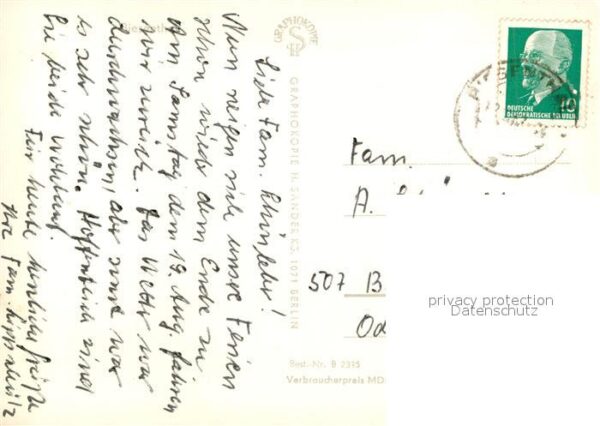 Liebe Fam. 
Nun neigen sich unsre Ferien
schon wieder dem Ende zu
Am Samstag dem 19. Aug. fahren
wir zurück. Das Wetter war
durchwachsen, aber sonst war
es sehr schön. Hoffentlich sind
Sie beide wohlauf.
Für heute herzliche Grüße
Ihre Fam.
GRAPHOKOPIE
GRAPHOKOPIE H. SANDER KG 1071 BERLIN
DEUTSCHE
DEMOKRATISCHE REPUBLIK
10
Fam.
A.
507 B
Od
Best.-Nr. B 2395
Verbraucherpreis MD
privacy protection
Datenschutz